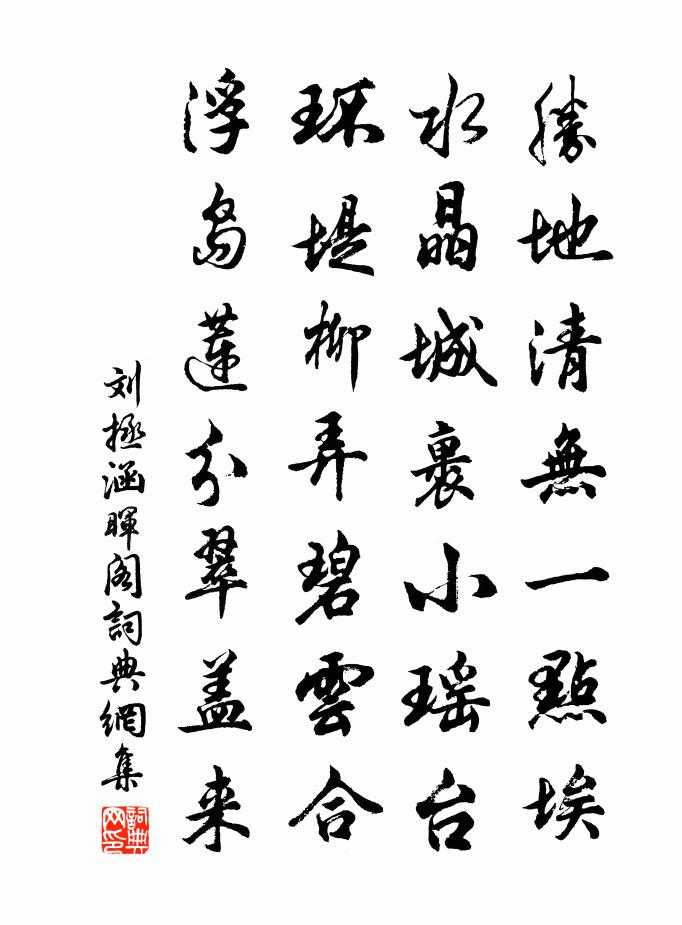 勝地清無一點埃
水晶城裏小瑶台
环堤柳弄碧雲合
浮島蓮分翠盖来
刘拯涵暉阁詞典網集
詞典网印